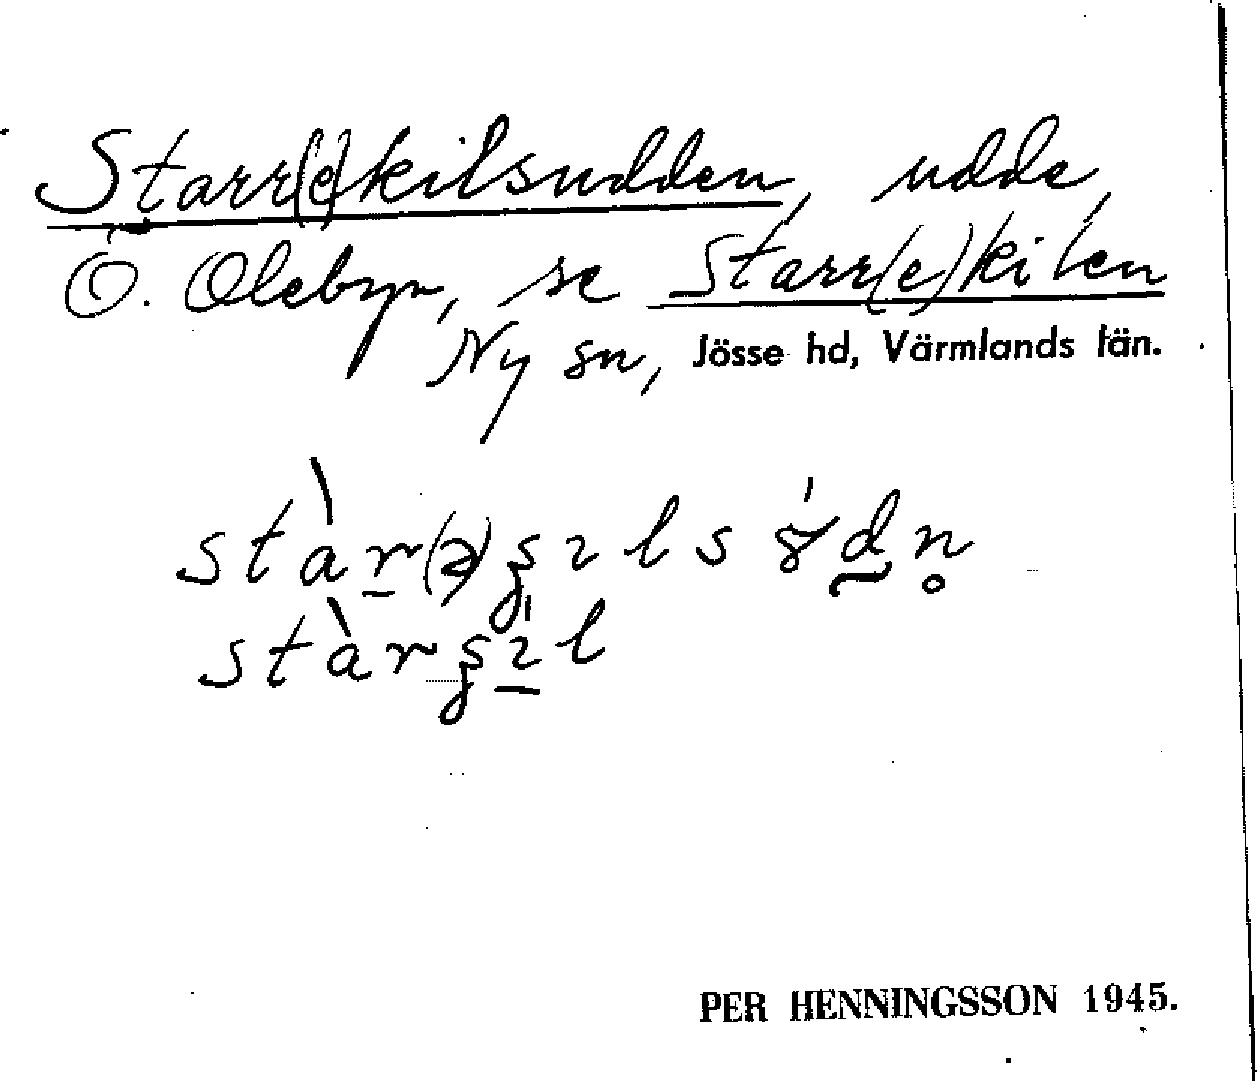 Starr(e)kilsudden, udde,
Ö. Oleby, se Starr(e)kilen
Ny sn, Jösse hd, Värmlands län.
stàr(ə)ʂıls
stàrʂıl
PER HENNINGSSON 1945.